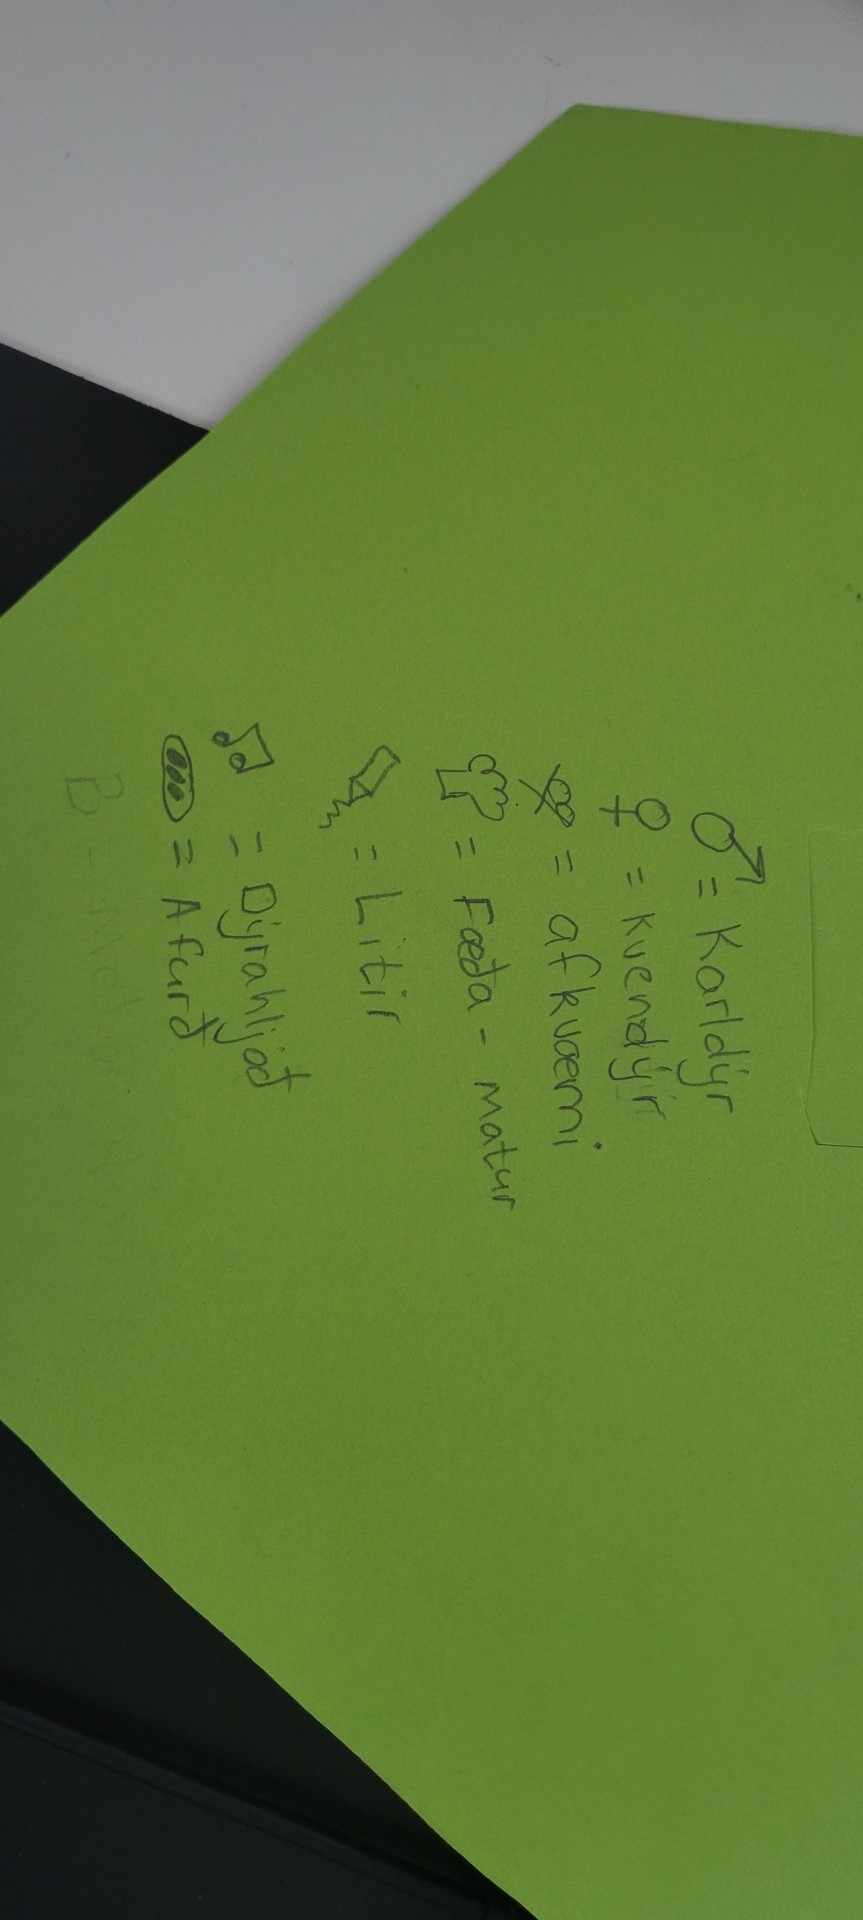 ♂ = Karldýr
♀ = kvendýr
= afkvæmi
= Fæða - Matur
= Litir
= Dýrahljóð
= Afurð
B =